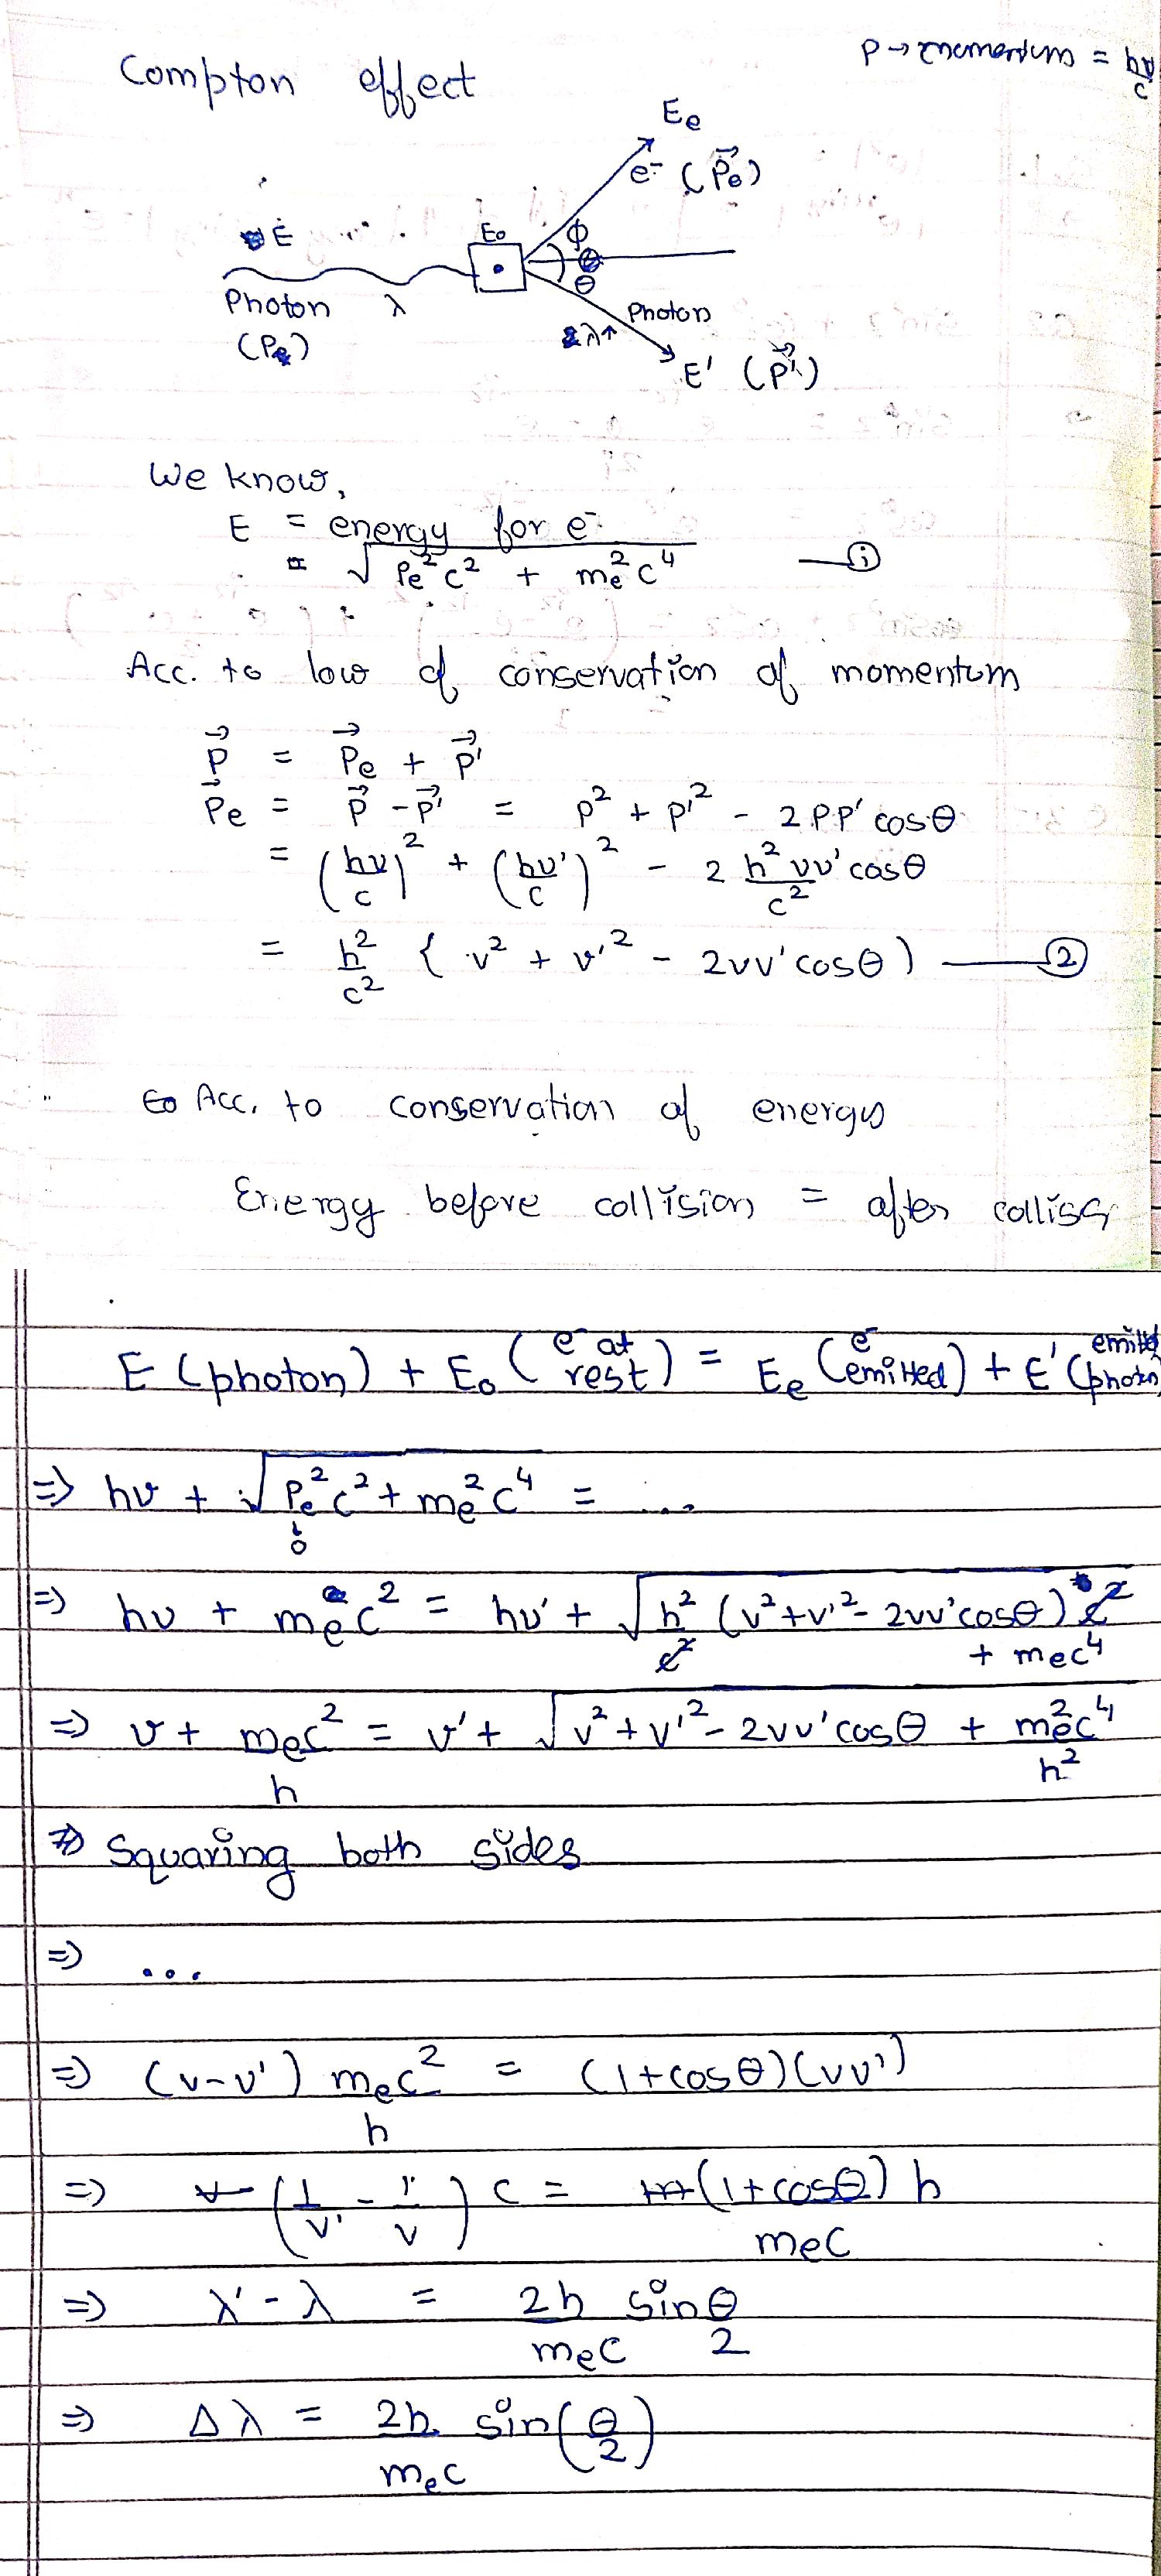 p → momentum = hν/c
Compton effect
Ee
e⁻ (P⃗e)
E
E₀
ϕ
θ
Photon λ
(P)
Photon
λ↑
E' (P⃗')
We know,
E = energy for e⁻
= √(Pe²c² + me²c⁴) —(i)
Acc. to low of conservation of momentum
P⃗ = P⃗e + P⃗'
P⃗e = P⃗ - P⃗' = p² + p'² - 2PP' cosθ
= (hν/c)² + (hν'/c)² - 2 h²νν'cosθ/c²
= h²/c² { ν² + ν'² - 2νν'cosθ ) —(2)
Acc. to conservation of energy
Energy before collision = after
E (photon) + E₀ (e⁻ at rest) = Ee (e⁻ emitted) + E' (emitted photon)
⇒ hν + √(Pe²c² + me²c⁴) = ...
↓
0
⇒ hν + mec² = hν' + √(h²/c² (ν²+ν'²-2νν'cosθ) c² + mec⁴)
⇒ ν + mec²/h = ν' + √(ν²+ν'²-2νν'cosθ + me²c⁴/h²)
⇒ Squaring both sides
⇒ ...
⇒ (ν-ν') mec²/h = (1+cosθ)(νν')
⇒ (1/ν' - 1/ν) c = (1+cosθ) h/mec
⇒ λ' - λ = 2h/mec sin θ/2
⇒ Δλ = 2h/mec sin(θ/2)